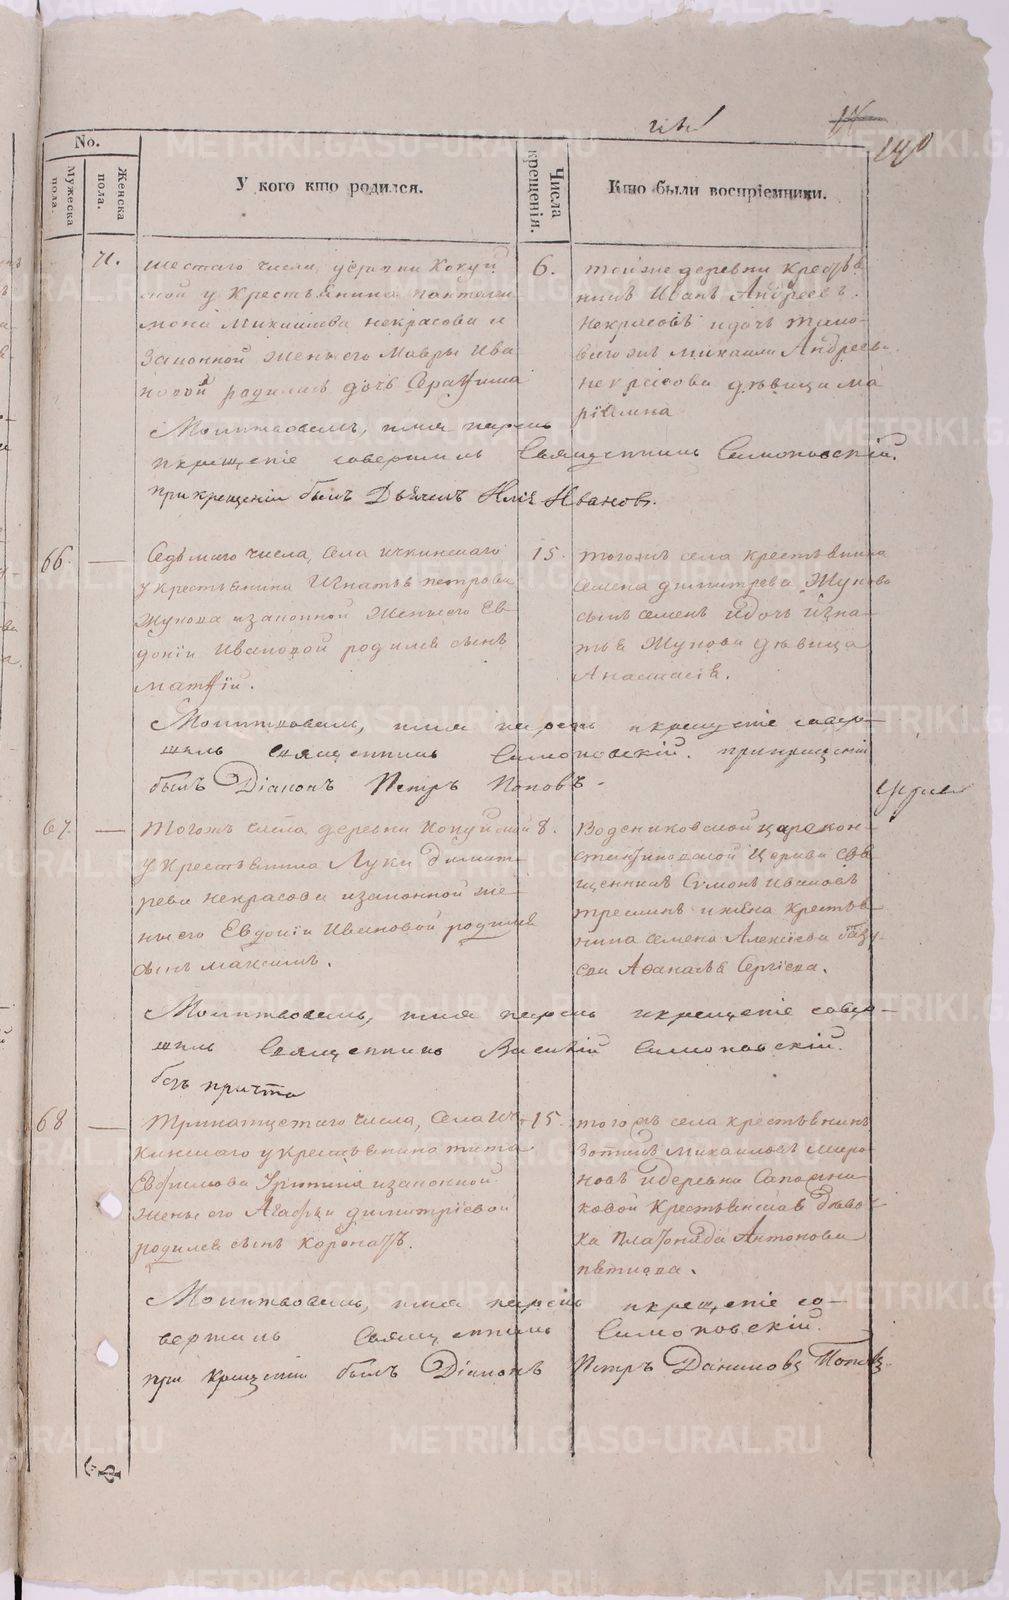 140
No.
Мужеска пола.
Женска пола.
У кого кто родился.
Числа крещенія.
Кто были воспріемники.
71.
шестаго числа,
у крестьянина
мона Михаилова некрасова и
законной жены его Мавры Ива
новой родилась дочь Серафима
6.
тойже деревни крестья
нинъ Иванъ Андреевъ
Некрасовъ идочь
Михаила Андреева
некрасова дѣвица Ма
ріамна
Молитвовалъ, имя нарекъ
икрещеніе совершилъ Священникъ Симоновскій.
При крещеніи былъ Дьячекъ Илія Ивановъ.
66.
Седьмаго числа, Села ичкинскаго
у крестьянина Игнатья петрова
Жукова изаконной Жены его Ев
докіи Ивановой родился сынъ
матѳій.
15.
тогожъ села крестьянина
Семена димитрева Жукова
сынъ семенъ идочь Игна
тья Жукова дѣвица
Анастасія.
Молитвовалъ, имя нарекъ икрещеніе совер-
шилъ Священникъ Симоновскій. прикрещеніи
былъ Діаконъ Петръ Поповъ.
67.
Тогожъ числа, деревни Кокуйской
у Крестьянина Луки Димит
рева некрасова изаконной же
ны его Евдокіи Ивановой родился
сынъ максимъ.
8.
Водениковской цареkon-
стантиновской Церкви свя
щенникъ Симонъ Ивановъ
ижена крестья
нина семена Алексіева
Афанасья Сергіева.
Молитвовалъ, имя нарекъ икрещеніе совер-
шилъ Священникъ Василій Симоновскій.
безъ причта
68
Тринатцетаго числа, Села Ич
кинскаго у крестьянина тита
Ефимова изаконной
жены его Агафьи димитріевой
родился сынъ Коронатъ.
15.
тогожъ села крестьянинъ
Зотикъ Михаиловъ Миро
новъ идеревни Сапожни
ковой Крестьянская Дѣво
ка Платонида Антонова
пѣтиова.
Молитвовалъ, имя нарекъ икрещеніе со-
вершилъ Священникъ Симоновскій.
при крещеніи былъ Діаконъ Петръ Даниловъ Поповъ.
METRIKI.GASO-URAL.RU